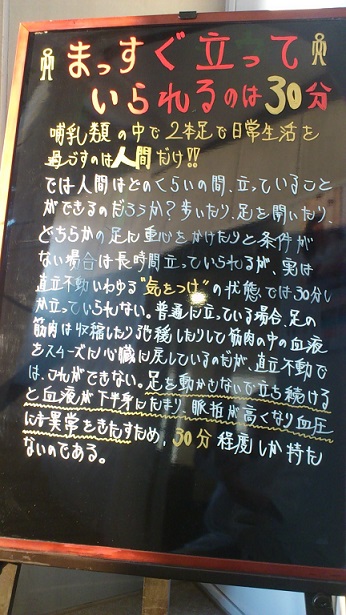 まっすぐ立って
いられるのは30分
哺乳類の中で2本足で日常生活を
過ごすのは人間だけ!!
では人間はどのくらいの間、立っていること
ができるのだろうか?歩いたり、足を開いたり、
どちらかの足に重心をかけたりと条件が
ない場合は長時間立っていられるが、実は
直立不動いわゆる"気をつけ"の状態では30分し
か立っていられない。普通に立っている場合、足の
筋肉は収縮したり弛緩したりして筋肉の中の血液
をスムーズに心臓に戻しているのだが、直立不動で
は、これができない。足を動かさないで立ち続ける
と血液が下半身にたまり、脈拍が高くなり血圧
にも異常をきたすため、30分程度しか持た
ないのである。